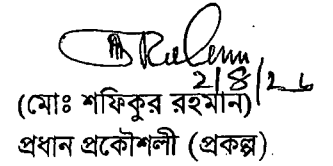 2/8/26
(মোঃ শফিকুর রহমান)
প্রধান প্রকৌশলী (প্রকল্প)